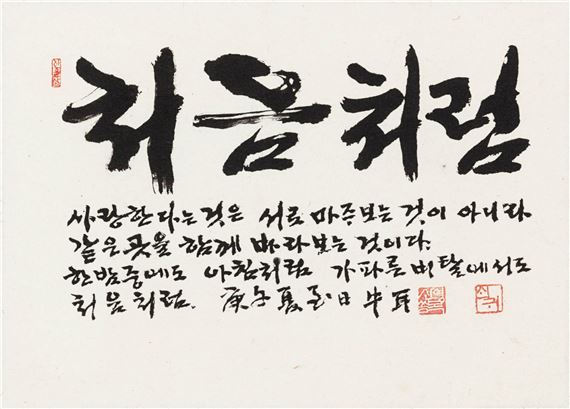 처음처럼
사랑한다는것은 서로 마주보는 것이 아니라
같은곳을 함께 바라보는 것이다.
한밤중에도 아침처럼 가파른 비탈에서도
처음처럼. 庚子夏至日 牛耳